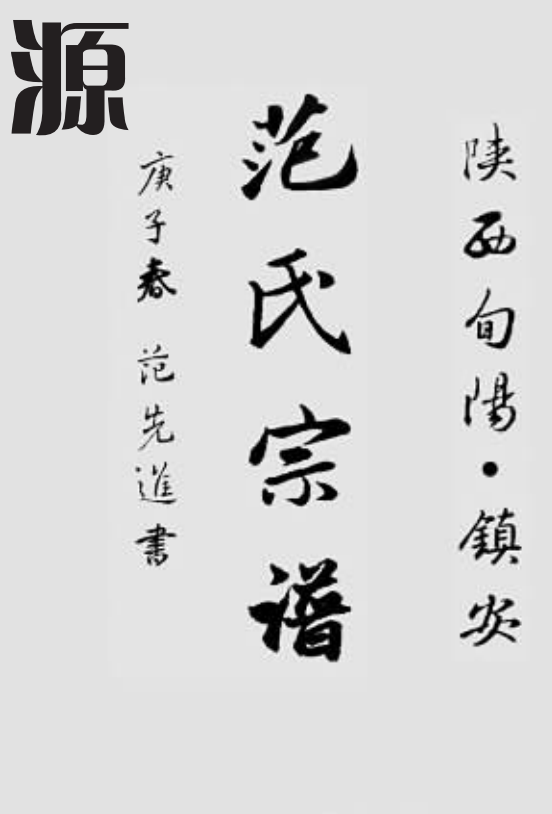 源
陕西旬陽·鎮安
范氏宗譜
庚子春 范先進書